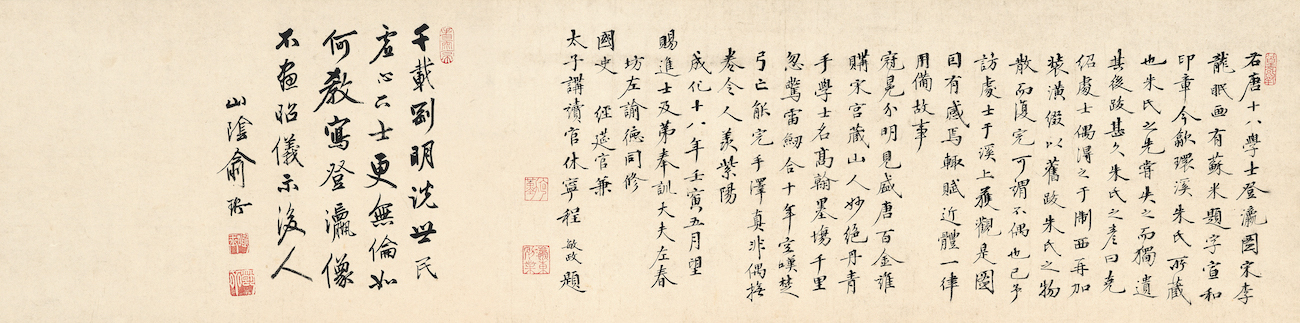 右唐十八學士登瀛圖宋李
龍眠画有蘇米題字宣和
印章今歙環溪朱氏所藏
也朱氏之先嘗失之而獨遺
其後跋甚久朱氏之彥曰克
紹處士偶得之于淛西再加
裝潢綴以舊跋朱氏之物
散而復完可謂不偶也已予
訪處士于溪上獲觀是圖
因有感焉輒賦近體一律
用備故事
冠冕分明見盛唐百金誰
購宋宮藏山人妙絕丹青
手學士名高翰墨場千里
忽驚雷劒合十年空嘆楚
弓亡能完手澤真非偶撫
卷令人羨紫陽
成化十八年壬寅五月望
賜進士及第奉訓大夫左春
坊左諭德同修
國史 經筵官兼
太子講讀官休寧程敏政題
千載明世民
虛心下士更無倫如
何教寫登瀛像
不畫昭儀示後人
山陰俞